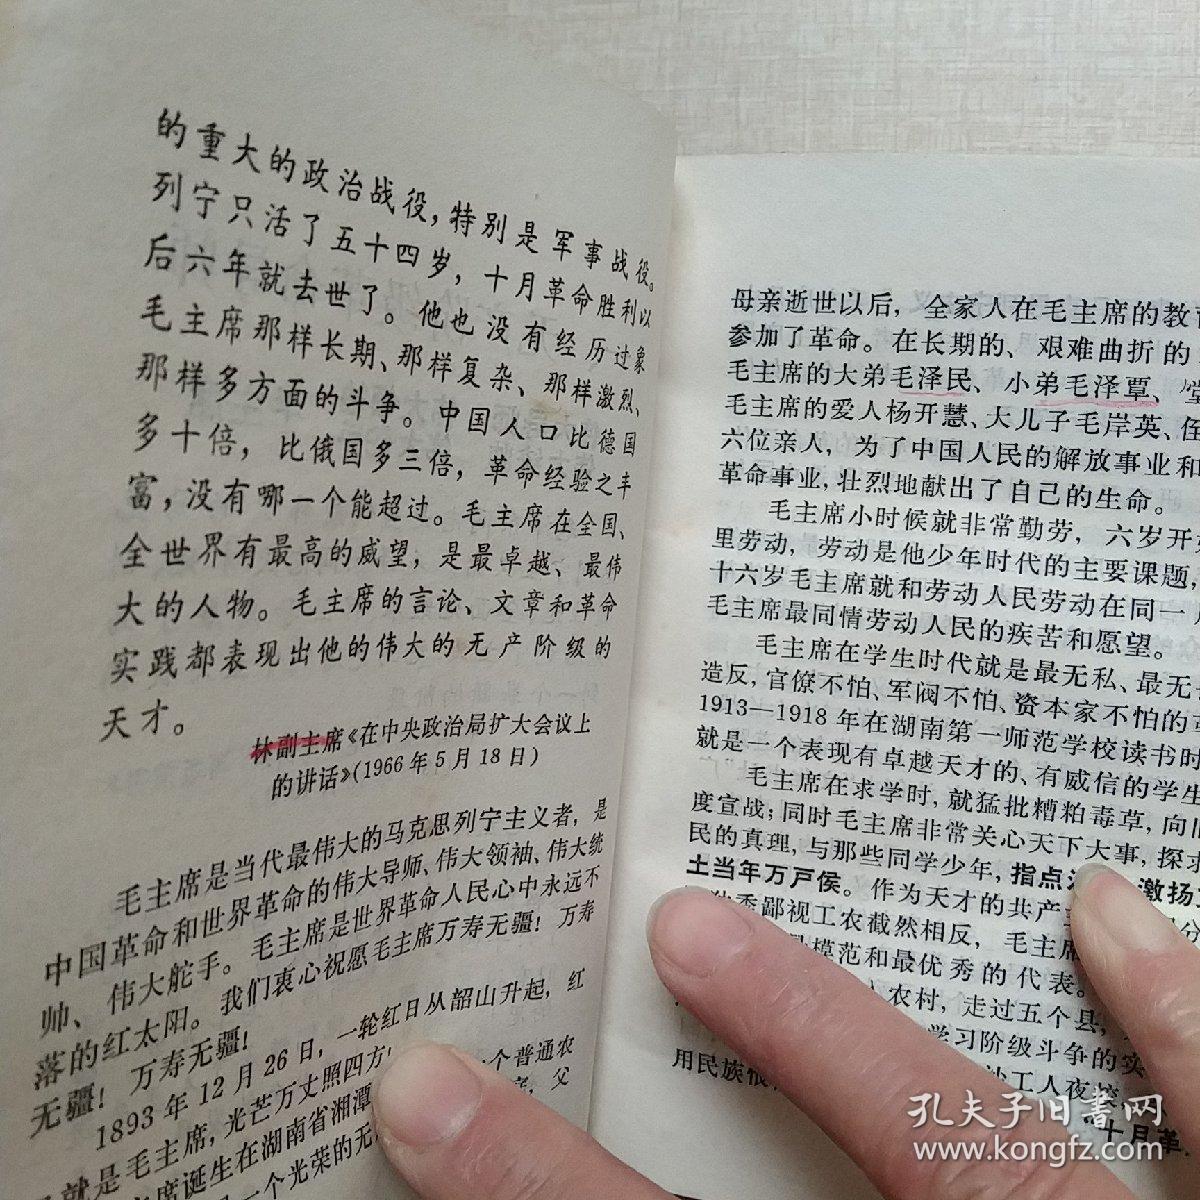 的重大的政治战役，特别是军事战役。
列宁只活了五十四岁，十月革命胜利以
后六年就去世了。他也没有经历过象
毛主席那样长期、那样复杂、那样激烈、
那样多方面的斗争。中国人口比德国
多十倍，比俄国多三倍，革命经验之丰
富，没有哪一个能超过。毛主席在全国、
全世界有最高的威望，是最卓越、最伟
大的人物。毛主席的言论、文章和革命
实践都表现出他的伟大的无产阶级的
天才。
林副主席《在中央政治局扩大会议上
的讲话》（1966年5月18日）
毛主席是当代最伟大的马克思列宁主义者，是
中国革命和世界革命的伟大导师、伟大领袖、伟大统
帅、伟大舵手。毛主席是世界革命人民心中永远不
落的红太阳。我们衷心祝愿毛主席万寿无疆！万寿
无疆！万寿无疆！
1893年12月26日，一轮红日从韶山升起，红
就是毛主席，光芒万丈照四方！
个普通农
席诞生在湖南省湘潭
父
一个光荣的无
母亲逝世以后，全家人在毛主席的教
参加了革命。在长期的、艰难曲折的
毛主席的大弟毛泽民、小弟毛泽覃、堂
毛主席的爱人杨开慧、大儿子毛岸英、侄
六位亲人，为了中国人民的解放事业和
革命事业，壮烈地献出了自己的生命。
毛主席小时候就非常勤劳，六岁开
里劳动，劳动是他少年时代的主要课题，
十六岁毛主席就和劳动人民劳动在同一
毛主席最同情劳动人民的疾苦和愿望。
毛主席在学生时代就是最无私、最无
造反，官僚不怕、军阀不怕、资本家不怕的
1913—1918年在湖南第一师范学校读书时
就是一个表现有卓越天才的、有威信的学生
毛主席在求学时，就猛批糟粕毒草，向旧
度宣战；同时毛主席非常关心天下大事，探求
民的真理，与那些同学少年，指点 激扬
土当年万戸侯。作为天才的共产主
秀鄙视工农截然相反，毛主席
模范和最优秀的代表。
农村，走过五个县，
学习阶级斗争的实
沙工人夜校
用民族
“十月革
孔夫子旧书网
www.kongfz.com